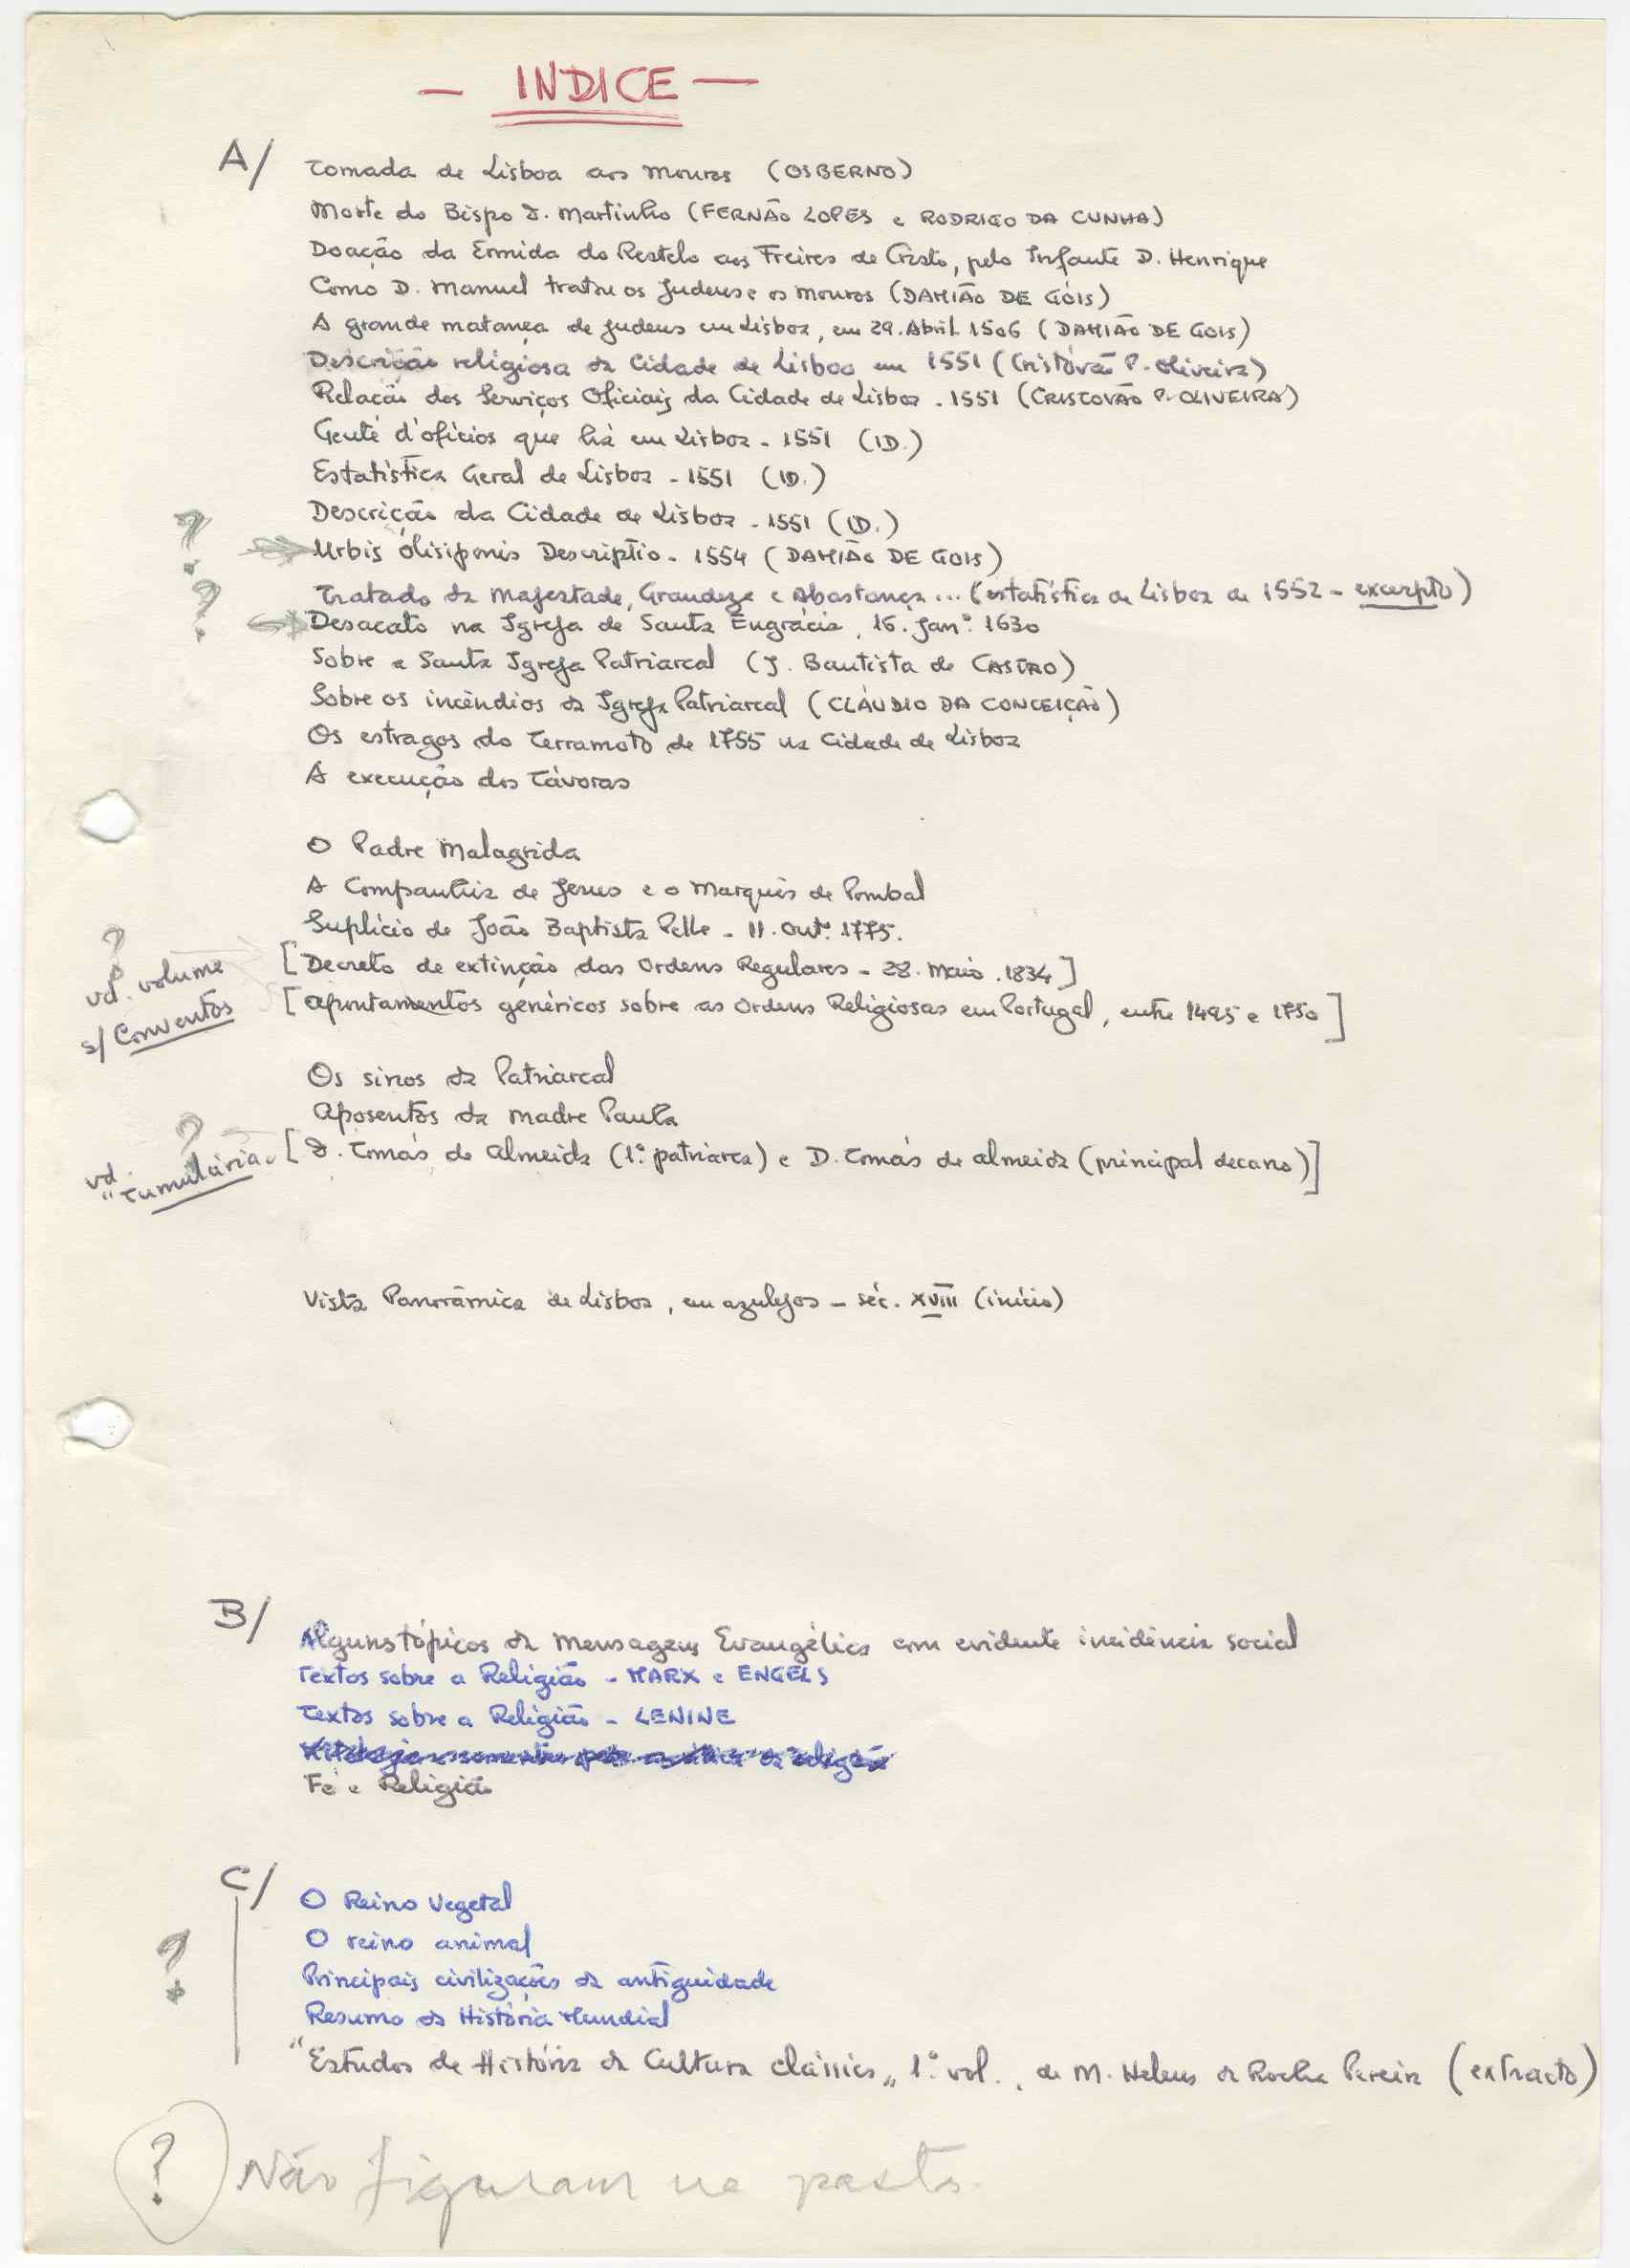 — INDICE —
A/ Tomada de Lisboa aos Mouros (OSBERNO)
Morte do Bispo D. Martinho (FERNÃO LOPES e RODRIGO DA CUNHA)
Doação da Ermida do Restelo aos Freires de Cristo, pelo Infante D. Henrique
Como D. Manuel tratou os Judeus e os Mouros (DAMIÃO DE GÓIS)
A grande matança de Judeus em Lisboa, em 29. Abril 1506 (DAMIÃO DE GOIS)
Descrição religiosa da Cidade de Lisboa em 1551 (Cristóvão P. Oliveira)
Relação dos Serviços Oficiais da Cidade de Lisboa - 1551 (CRISTOVÃO P. OLIVEIRA)
Gente d'ofícios que há em Lisboa - 1551 (ID.)
Estatística Geral de Lisboa - 1551 (ID.)
Descrição da Cidade de Lisboa - 1551 (ID.)
? Urbis Olisiponis Descriptio - 1554 (DAMIÃO DE GOIS)
Tratado da Majestade, Grandeza e Abastança... (estatística de Lisboa de 1552 - excerpto)
? Desacato na Igreja de Santa Engrácia, 16. Janº. 1630
Sobre a Santa Igreja Patriarcal (J. Bautista de CASTRO)
Sobre os incêndios da Igreja Patriarcal (CLÁUDIO DA CONCEIÇÃO)
Os estragos do Terramoto de 1755 na Cidade de Lisboa
A execução dos Távoras
O Padre Malagrida
A Companhia de Jesus e o Marquês de Pombal
Suplício de João Baptista Pelle - 11. Outº. 1775.
? vd. volume s/ Conventos
[Decreto de extinção das Ordens Regulares - 28. Maio. 1834]
[Apontamentos genéricos sobre as Ordens Religiosas em Portugal, entre 1495 e 1750]
Os sinos da Patriarcal
Aposentos da Madre Paula
? vd. "Tumulária"
[D. Tomás de Almeida (1º. patriarca) e D. Tomás de Almeida (principal decano)]
Vista Panorâmica de Lisboa, em azulejos - séc. XVIII (início)
B/ Alguns tópicos da Mensagem Evangélica com evidente incidência social
Textos sobre a Religião - MARX e ENGELS
Textos sobre a Religião - LENINE
Fé e Religião
C/ O Reino Vegetal
O reino animal
? Principais civilizações da antiguidade
Resumo da História Mundial
"Estudos de História da Cultura Clássica" 1º. vol., de M. Helena da Rocha Pereira (extracto)
? Não figuram na pasta.